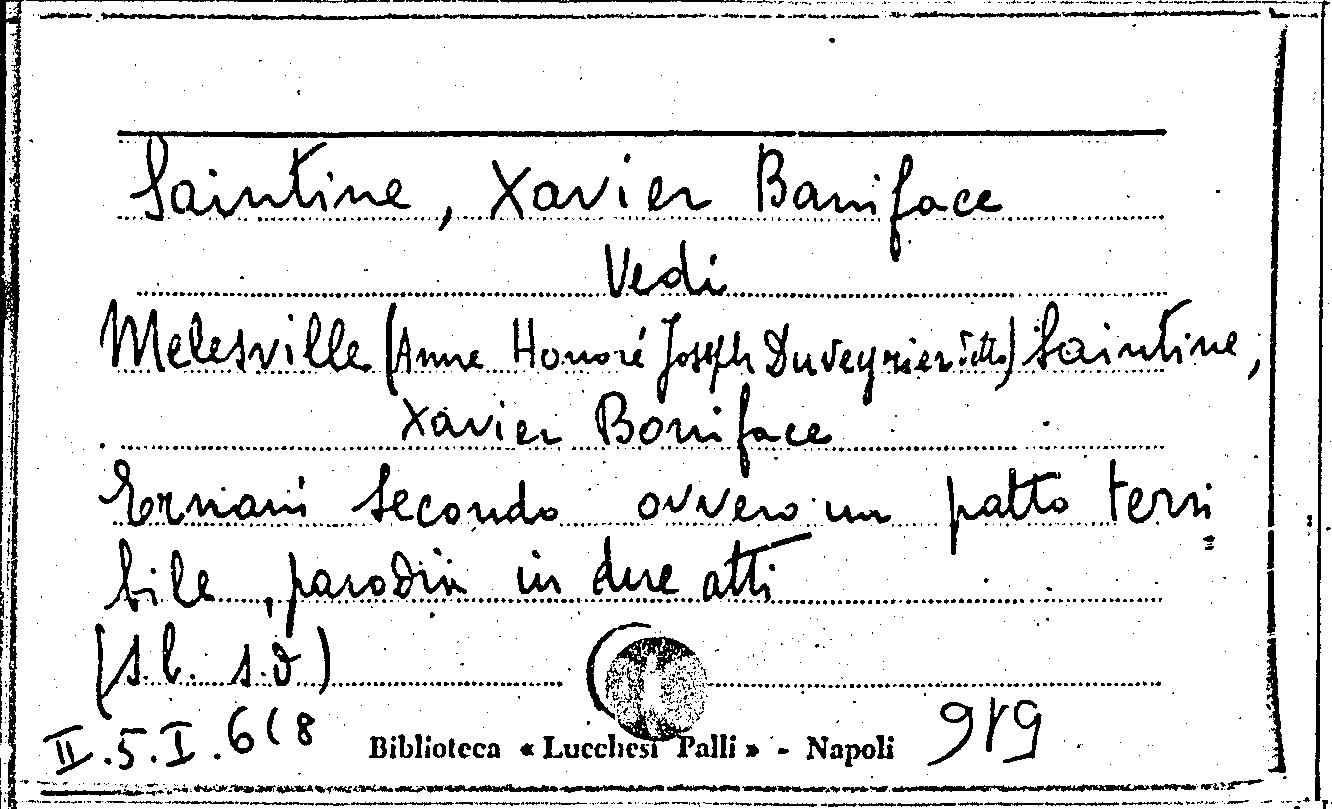 Saintine, Xavier Boniface
Vedi
Melesville (Anne Honoré Joseph Duveyrier detto) Saintine,
Xavier Boniface
Ernani secondo ovvero un patto terri
bile, parodia in due atti
(s.l. s.d)
II.5.I.6(8
Biblioteca « Lucchesi Palli » - Napoli
919